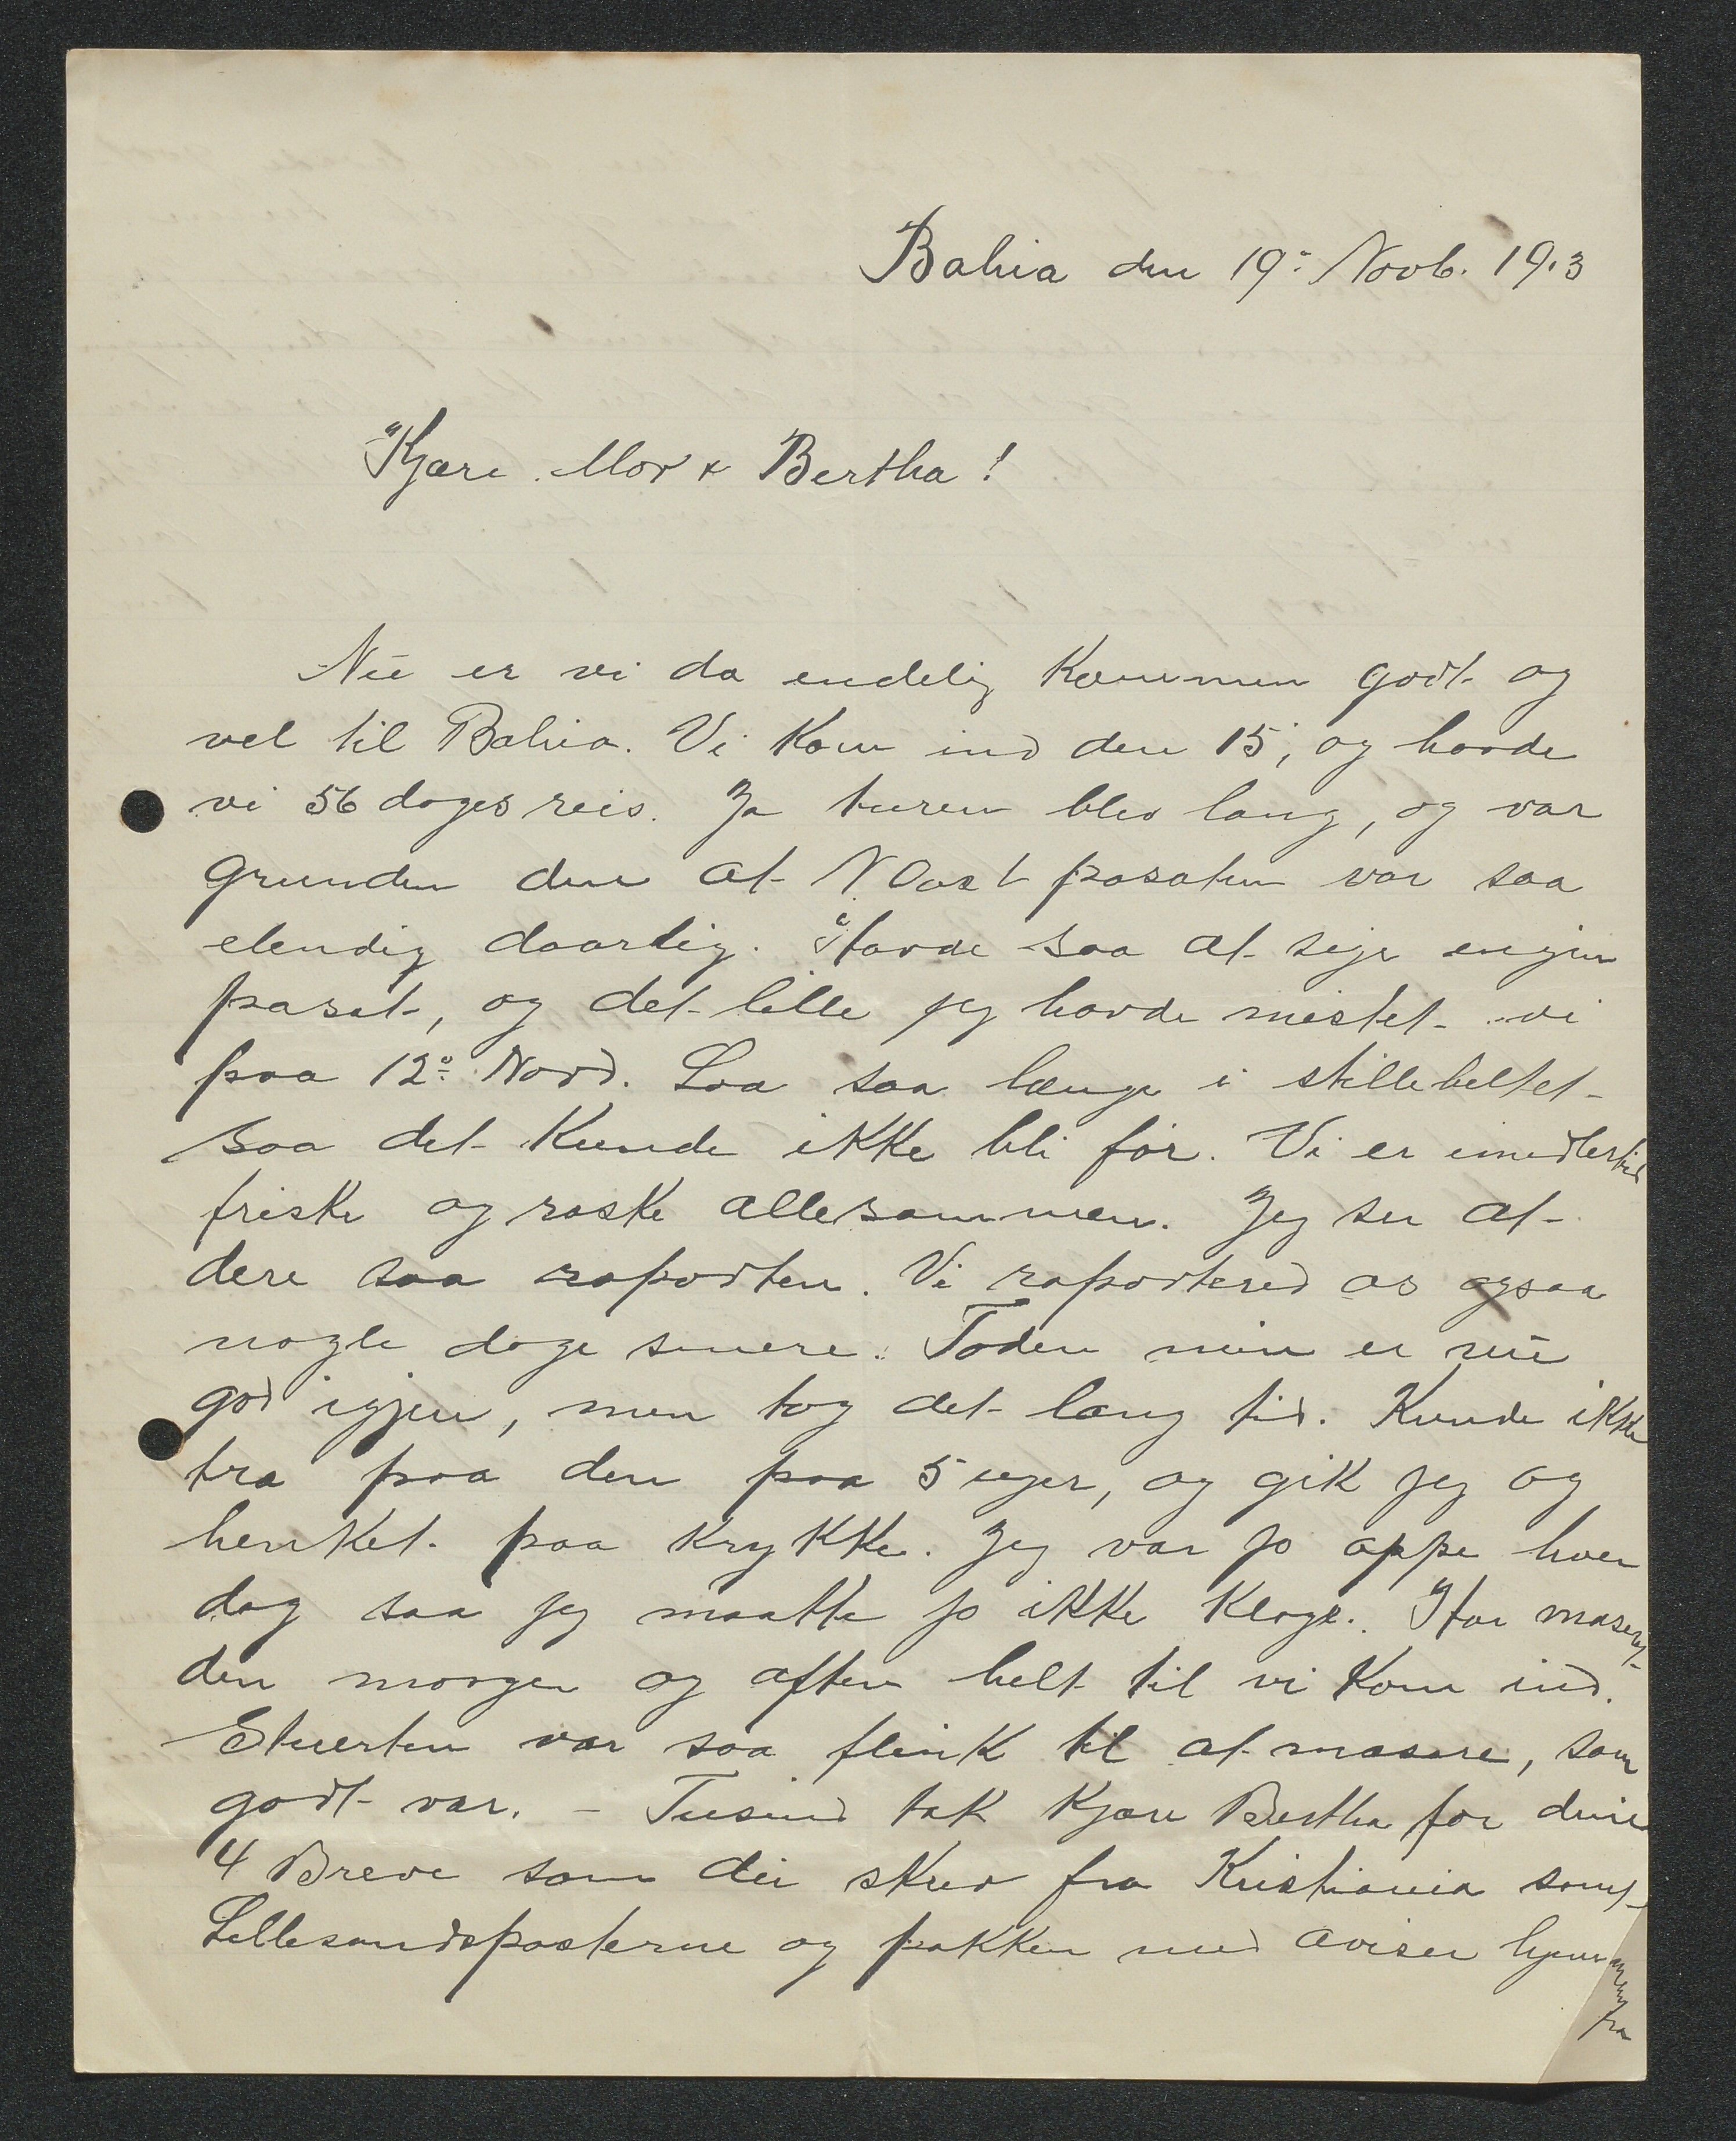 Bahia den 19: Novb. 1913
Kjære Mor & Bertha!
Nu er vi da endelig kommen godt og
vel til Bahia. Vi kom ind den 15, og havde
vi 56 dages reis. Ja turen blev lang, og var
grunden den at N.Oost pasaten var saa
elendig daarlig. Havde saa at sige engin
pasat, og det lille jeg havde mistet vi
paa 12° Nord. Laa saa længe i stillebeltet
saa det kunde ikke bli før. Vi er imidlertid
friske og raske allesammen. Jeg ser at
dere saa raporten. Vi raportered os ogsaa
nogle dage senere. Foden min er nu
god igjen, men tog det lang tid. Kunde ikke
træ paa den paa 5 uger, og gik jeg og
henket paa krykke. Jeg var jo oppe hver
dag saa jeg maatte jo ikke klage. Har maseret
den morgen og aften helt til vi kom ind.
Stuerten var saa flink til at masere, som
godt var. - Tusind tak kjære Bertha for dine
4 Breve som du skrev fra Kristiania samt
Lillesandsposterne og pakken med aviser hjemmenfra